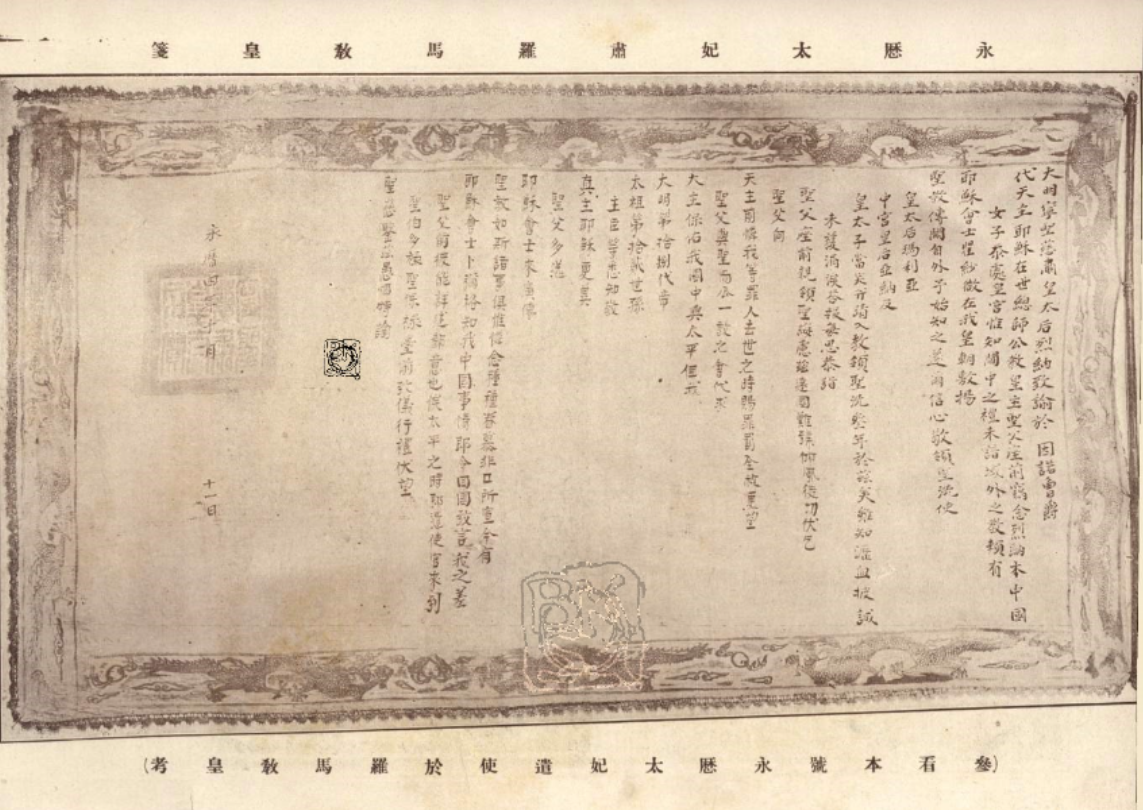 永歷太妃肅羅馬敎皇箋
大明寧聖慈肅皇太后烈納致諭於 因諾曾爵
代天主耶穌在世總師公教皇主聖父座前竊念烈納本中國
女子忝處皇宮惟知閫中之禮未諳域外之教賴有
耶穌會士瞿紗微在我皇朝敷揚
聖教傳聞自外予始知之遂爾信心敬領聖洗使
皇太后瑪利亞
中宮皇后亞納及
皇太子當定並請入教領聖洗叄年於茲矣雖知瀝血披誠
未獲涓埃答報每思恭詣
聖父座前親領聖誨慮茲遠國難臻仰風徒切伏乞
聖父向
天主前憐我等罪人去世之時賜罪罰全赦更望
聖父與聖而公一教之會代求
天主保佑我國中興太平俾我
大明第拾捌代帝
太祖第拾貳世孫
主臣等悉知敬
真主耶穌更冀
聖父多送
耶穌會士來廣傳
聖教如斯諸事俱惟憐念種種眷慕非口所宣今有
耶穌會士卜彌格知我中國事情即令回國致言我之差
聖父前彼能詳述鄙意也俟太平之時即遣使官來到
聖伯多祿聖保祿臺前致儀行禮伏望
聖慈鑒茲愚悃特諭
永曆四年十月
十一日
(參看本號永歷太妃遣使於羅馬敎皇考)